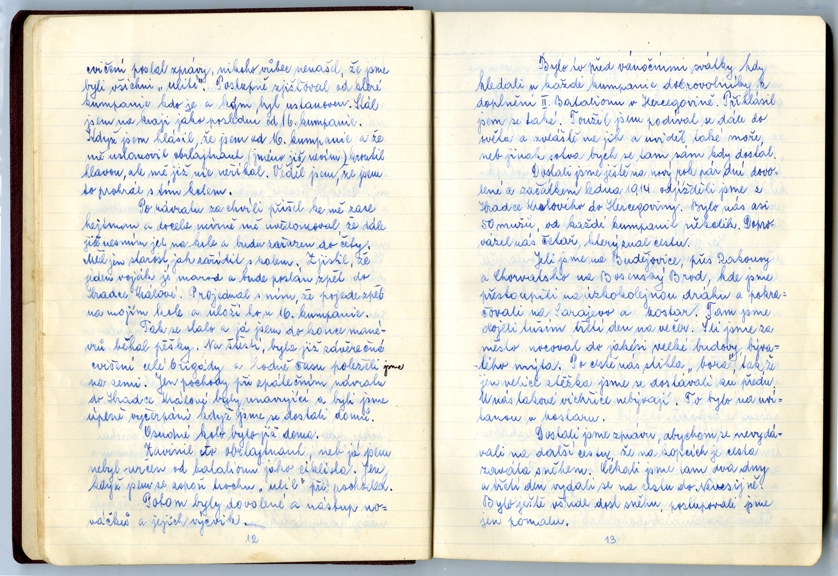 cvičení poslal zprávy, nikoho vůbec nenašel, že jsme
byli všichni „ulití“. Postupně zjišťoval od které
kumpanie kdo je a kým byl ustanoven. Stál
jsem na kraji jako poslední od 16. kumpanie.
Když jsem hlásil, že jsem od 16. kumpanie a že
mě ustanovil obrlajtnant (jméno již nevím) kroutil
hlavou, ale mě již nic neříkal. Viděl jsem, že jsem
to prohrál s tím kolem.
Po návratu za chvíli přišel ke mě zase
hejtman a docela mírně mě že dál
již nesmím jet na kole a budu zařazen do čety.
Měl jen starost, jak zařídit s kolem. Zjistil, že
jeden voják je marod a bude poslán zpět do
Hradce Králové. Projednal s ním, že pojede zpět
na mojím kole a uloží ho u 16. kumpanie.
Tak se stalo a já jsem do konce mané-
vrů běhal pěšky. Na štěstí, bylo již závěrečné
cvičení celé brigády a hodně času poleželi jsme
na zemi. Jen pochody při zpátečním návratu
do Hradce Králové byly únavnější a byli jsme
úplně vyčerpáni když jsme se dostali domů.
Osudné kolo bylo již doma.
Zavinil to obrlajtnant, neb já jsem
nebyl určen od bataliónu jako cyklista. Jen
když jsem se aspoň trochu „ulil“ při pochodech.
Potom byly dovolené a nástup no-
váčků a jejich výcvik.
12
Bylo to před vánočními svátky, kdy
hledali u každé kumpanie dobrovolníky k
doplnění II. Batalionu v Hercegovině. Přihlásil
jsem se také. Toužil jsem podívat se dále do
světa a zvláště na jih a uvidět také moře,
neb jinak sotva bych se tam sám kdy dostal.
Dostali jsme ještě na nový rok pár dní dovo-
lené a začátkem ledna 1914 odjížděli jsme z
Hradce Královího do Hercegoviny. Bylo nás asi
50 mužů, od každé kumpanie několik. Dopro-
vázel nás četař, který znal cestu.
Jeli jsme na Budějovice, přes Rakousy
a Chorvatsko na Bosenský Brod, kde jsme
přestoupili na úzkokolejnou dráhu a pokra-
čovali na Sarajevo a Mostar. Tam jsme
dojeli tuším třetí den na večer. Šli jsme za
město nocovat do jakési velké budovy, býva-
lého mlýna. Po cestě nás stihla „bora“, tak že
jen velice stěžka jsme se dostávali ku předu.
U nás takové vichřice nebývají. To bylo na
u Mostaru.
Dostali jsme zprávu, abychom se nevydá-
vali na další cestu, že na kopcích je cesta
zaváta sněhem. Čekali jsme tam dva dny
a třetí den vydali se na cestu do Nevesijně.
Bylo ještě všude dost sněhu, postupovali jsme
jen pomalu.
13